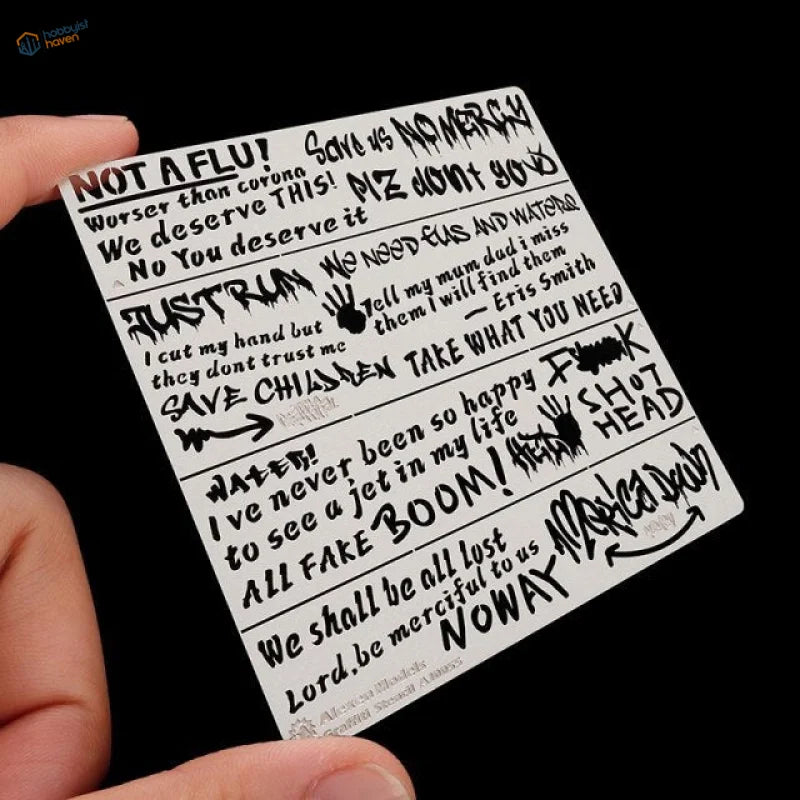 hobbyist
haven
NOT A FLU!
Save us
NO MERCY
Worser than corona
We deserve THIS!
PLZ dont go
No You deserve it
JUST RUN
We NEED
AND WATERS
Tell my mum dad i miss
them I will find them
— Eris Smith
I cut my hand but
they dont trust me
SAVE CHILDREN
TAKE WHAT YOU NEED
WATER!
I ve never been so happy
to see a jet in my life
HELP
F K
SHOT
HEAD
ALL FAKE
BOOM!
We shall be all lost
Lord, be merciful to us
NO WAY
America Down
Alexen Models
Graffiti Stencil AJ0055